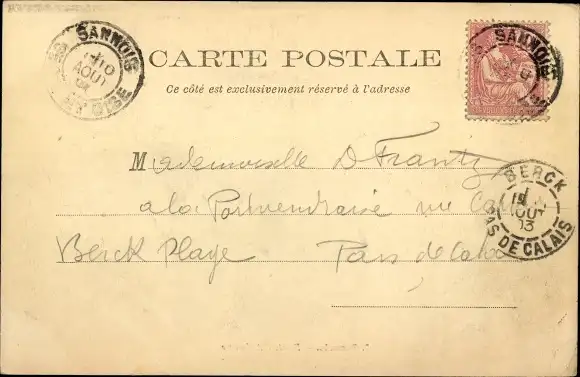 SANNOIS
10
AOUT
S. ET OISE
SANNOIS
CARTE POSTALE
Ce côté est exclusivement réservé à l'adresse
Mademoiselle D Frantz
a la rue
Berck Plage Pas de Calais
BERCK
AOUT
03
PAS DE CALAIS